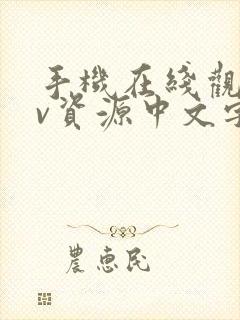 手機在綫觀
v資源中文字
農惠民